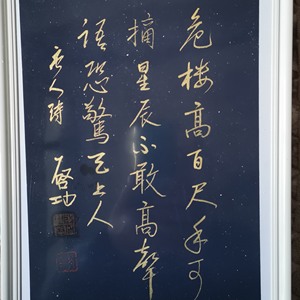 危楼高百尺手可
摘星辰不敢高声
语恐惊天上人
唐人诗 启功